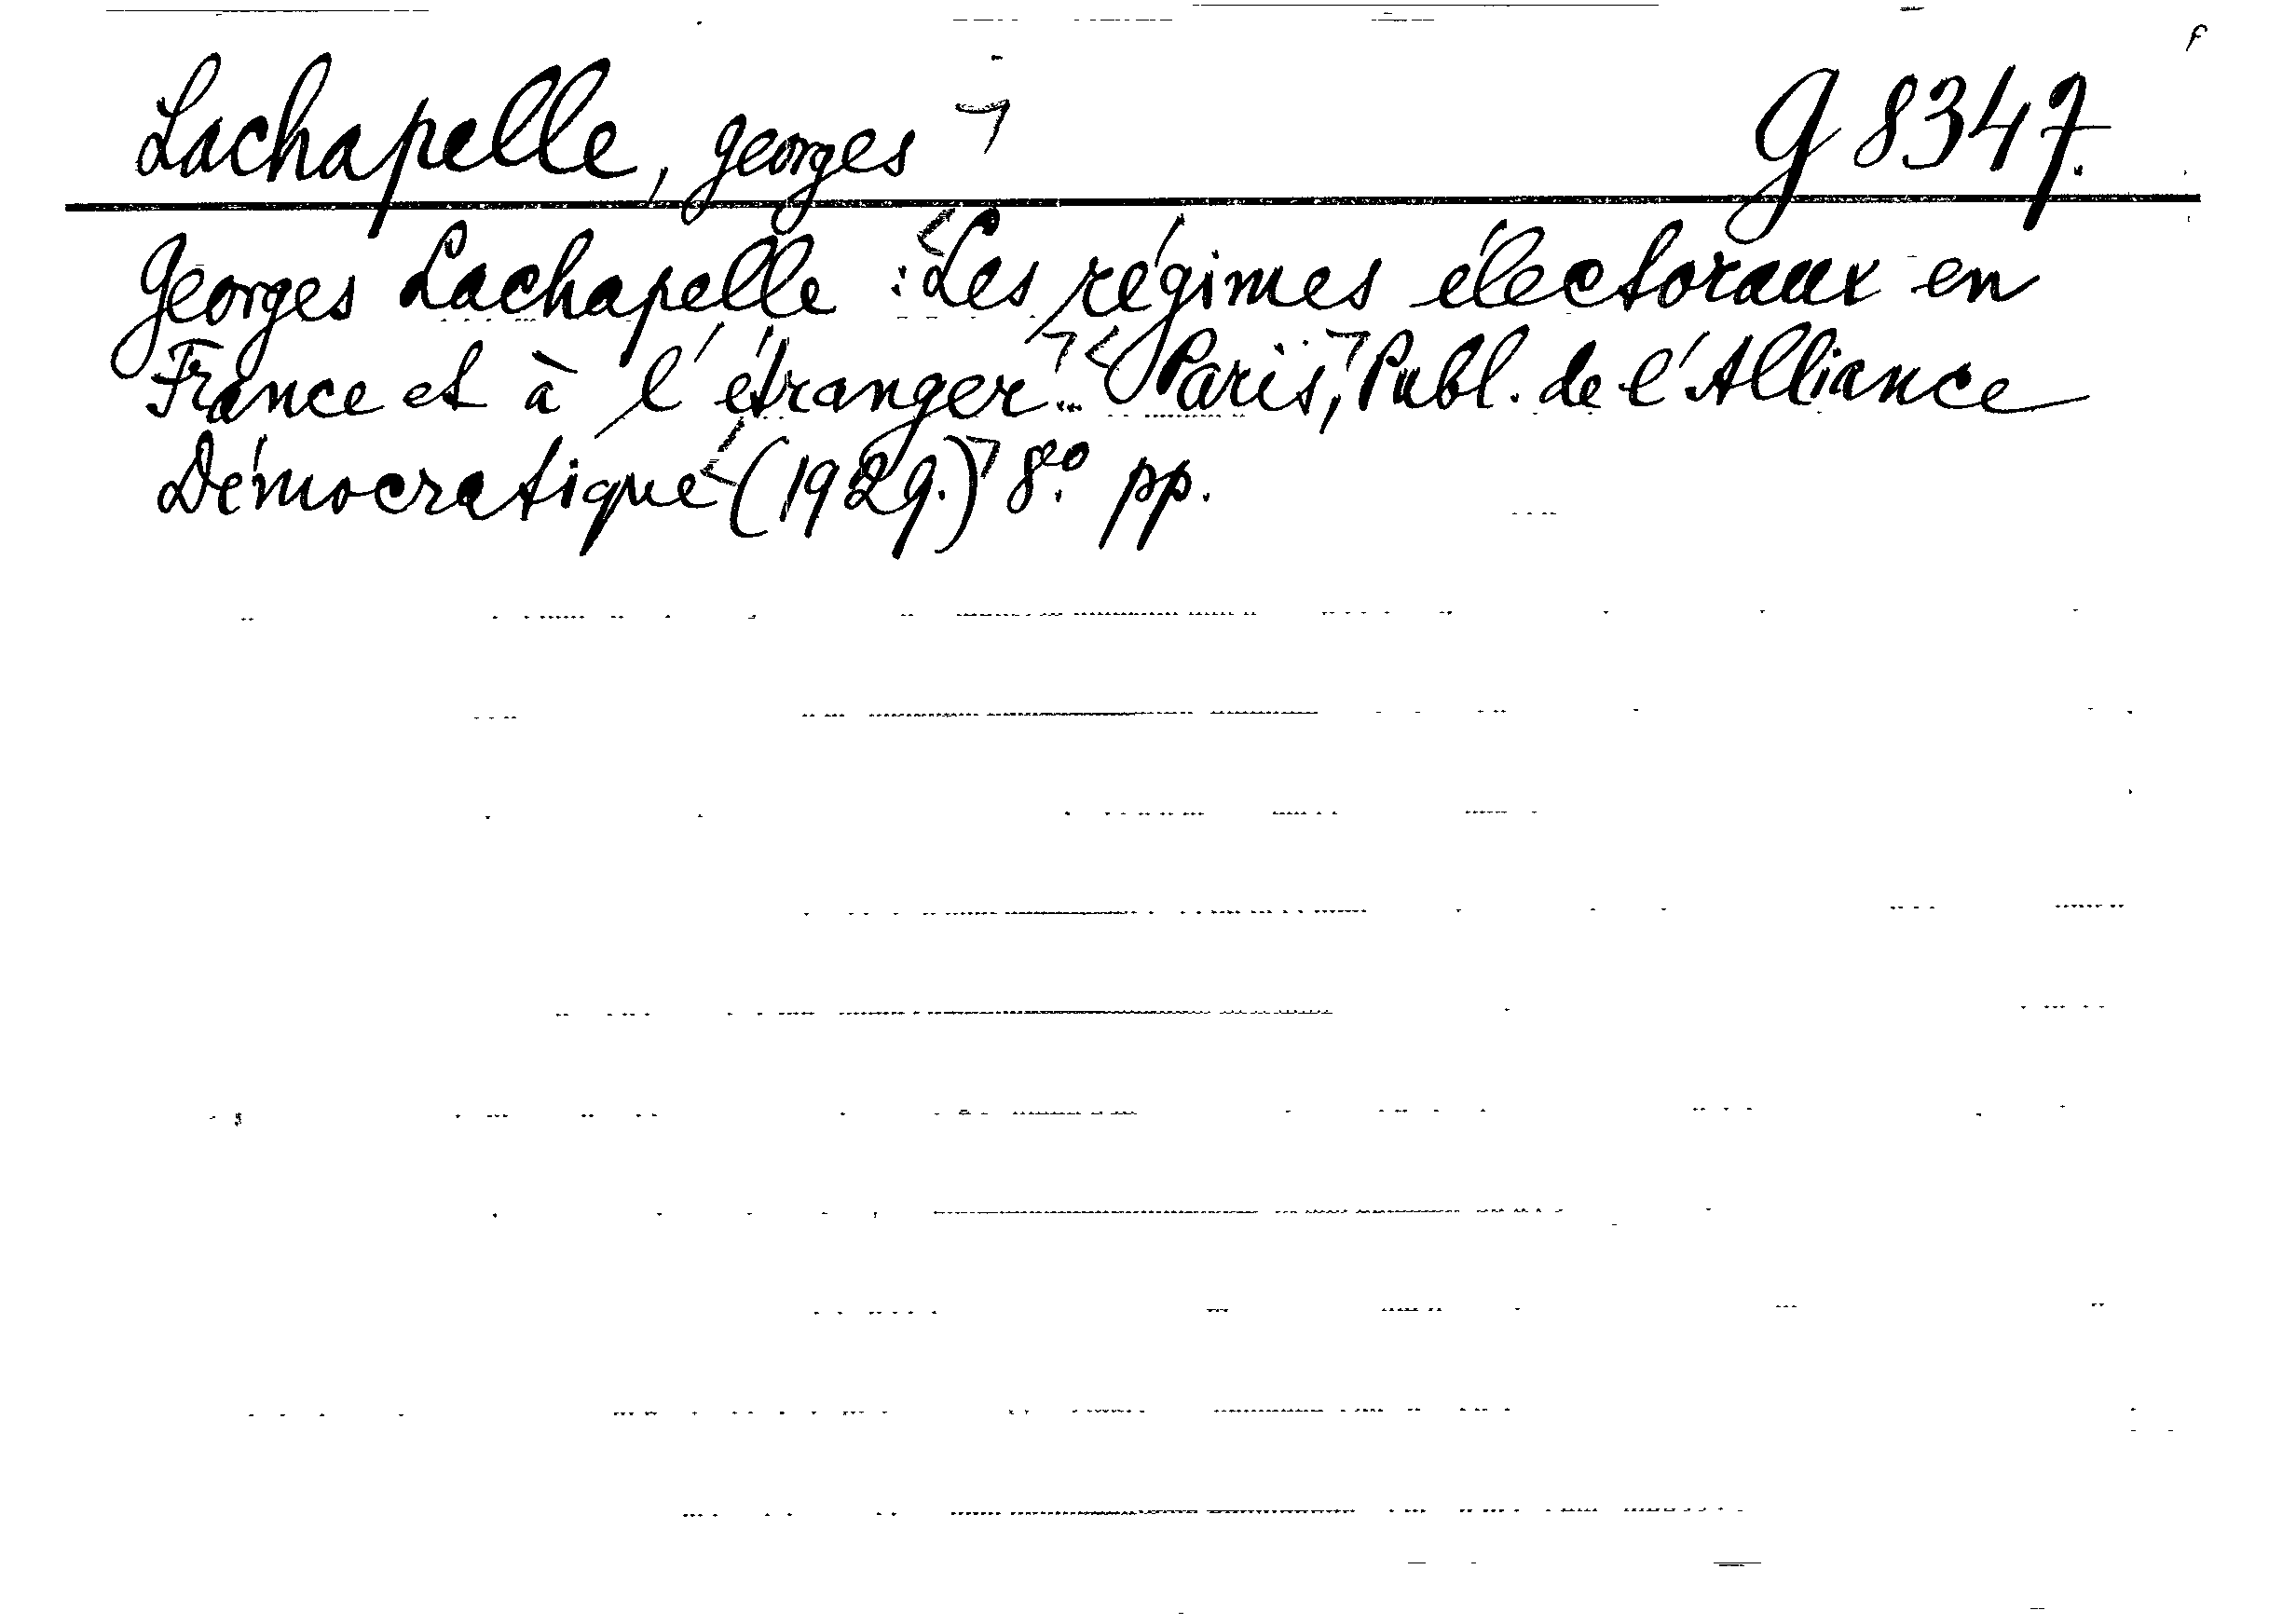 Lachapelle, Georges G 8347.
Georges Lachapelle : Les régimes électoraux en
France et à l'étranger... Paris, Publ. de l'Alliance
Démocratique (1929.) 8.° pp.